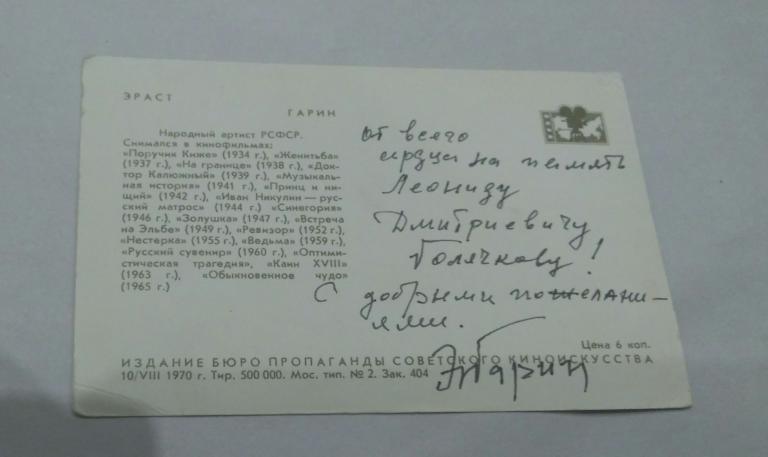 ЭРАСТ
ГАРИН
Народный артист РСФСР.
Снимался в кинофильмах:
«Поручик Киже» (1934 г.), «Женитьба»
(1937 г.), «На границе» (1938 г.), «Док-
тор Калюжный» (1939 г.), «Музыкаль-
ная история» (1941 г.), «Принц и ни-
щий» (1942 г.), «Иван Никулин — рус-
ский матрос» (1944 г.), «Синегория»
(1946 г.), «Золушка» (1947 г.), «Встреча
на Эльбе» (1949 г.), «Ревизор» (1952 г.),
«Нестерка» (1955 г.), «Ведьма» (1959 г.),
«Русский сувенир» (1960 г.), «Оптими-
стическая трагедия», «Каин XVIII»
(1963 г.), «Обыкновенное чудо»
(1965 г.)
от всего
сердца на память
Леониду
Дмитриевичу
Голячкову!
С добрыми пожелани-
ями.
ЭГарин
Цена 6 коп.
ИЗДАНИЕ БЮРО ПРОПАГАНДЫ СОВЕТСКОГО КИНОИСКУССТВА
10/VIII 1970 г. Тир. 500 000. Мос. тип. № 2. Зак. 404